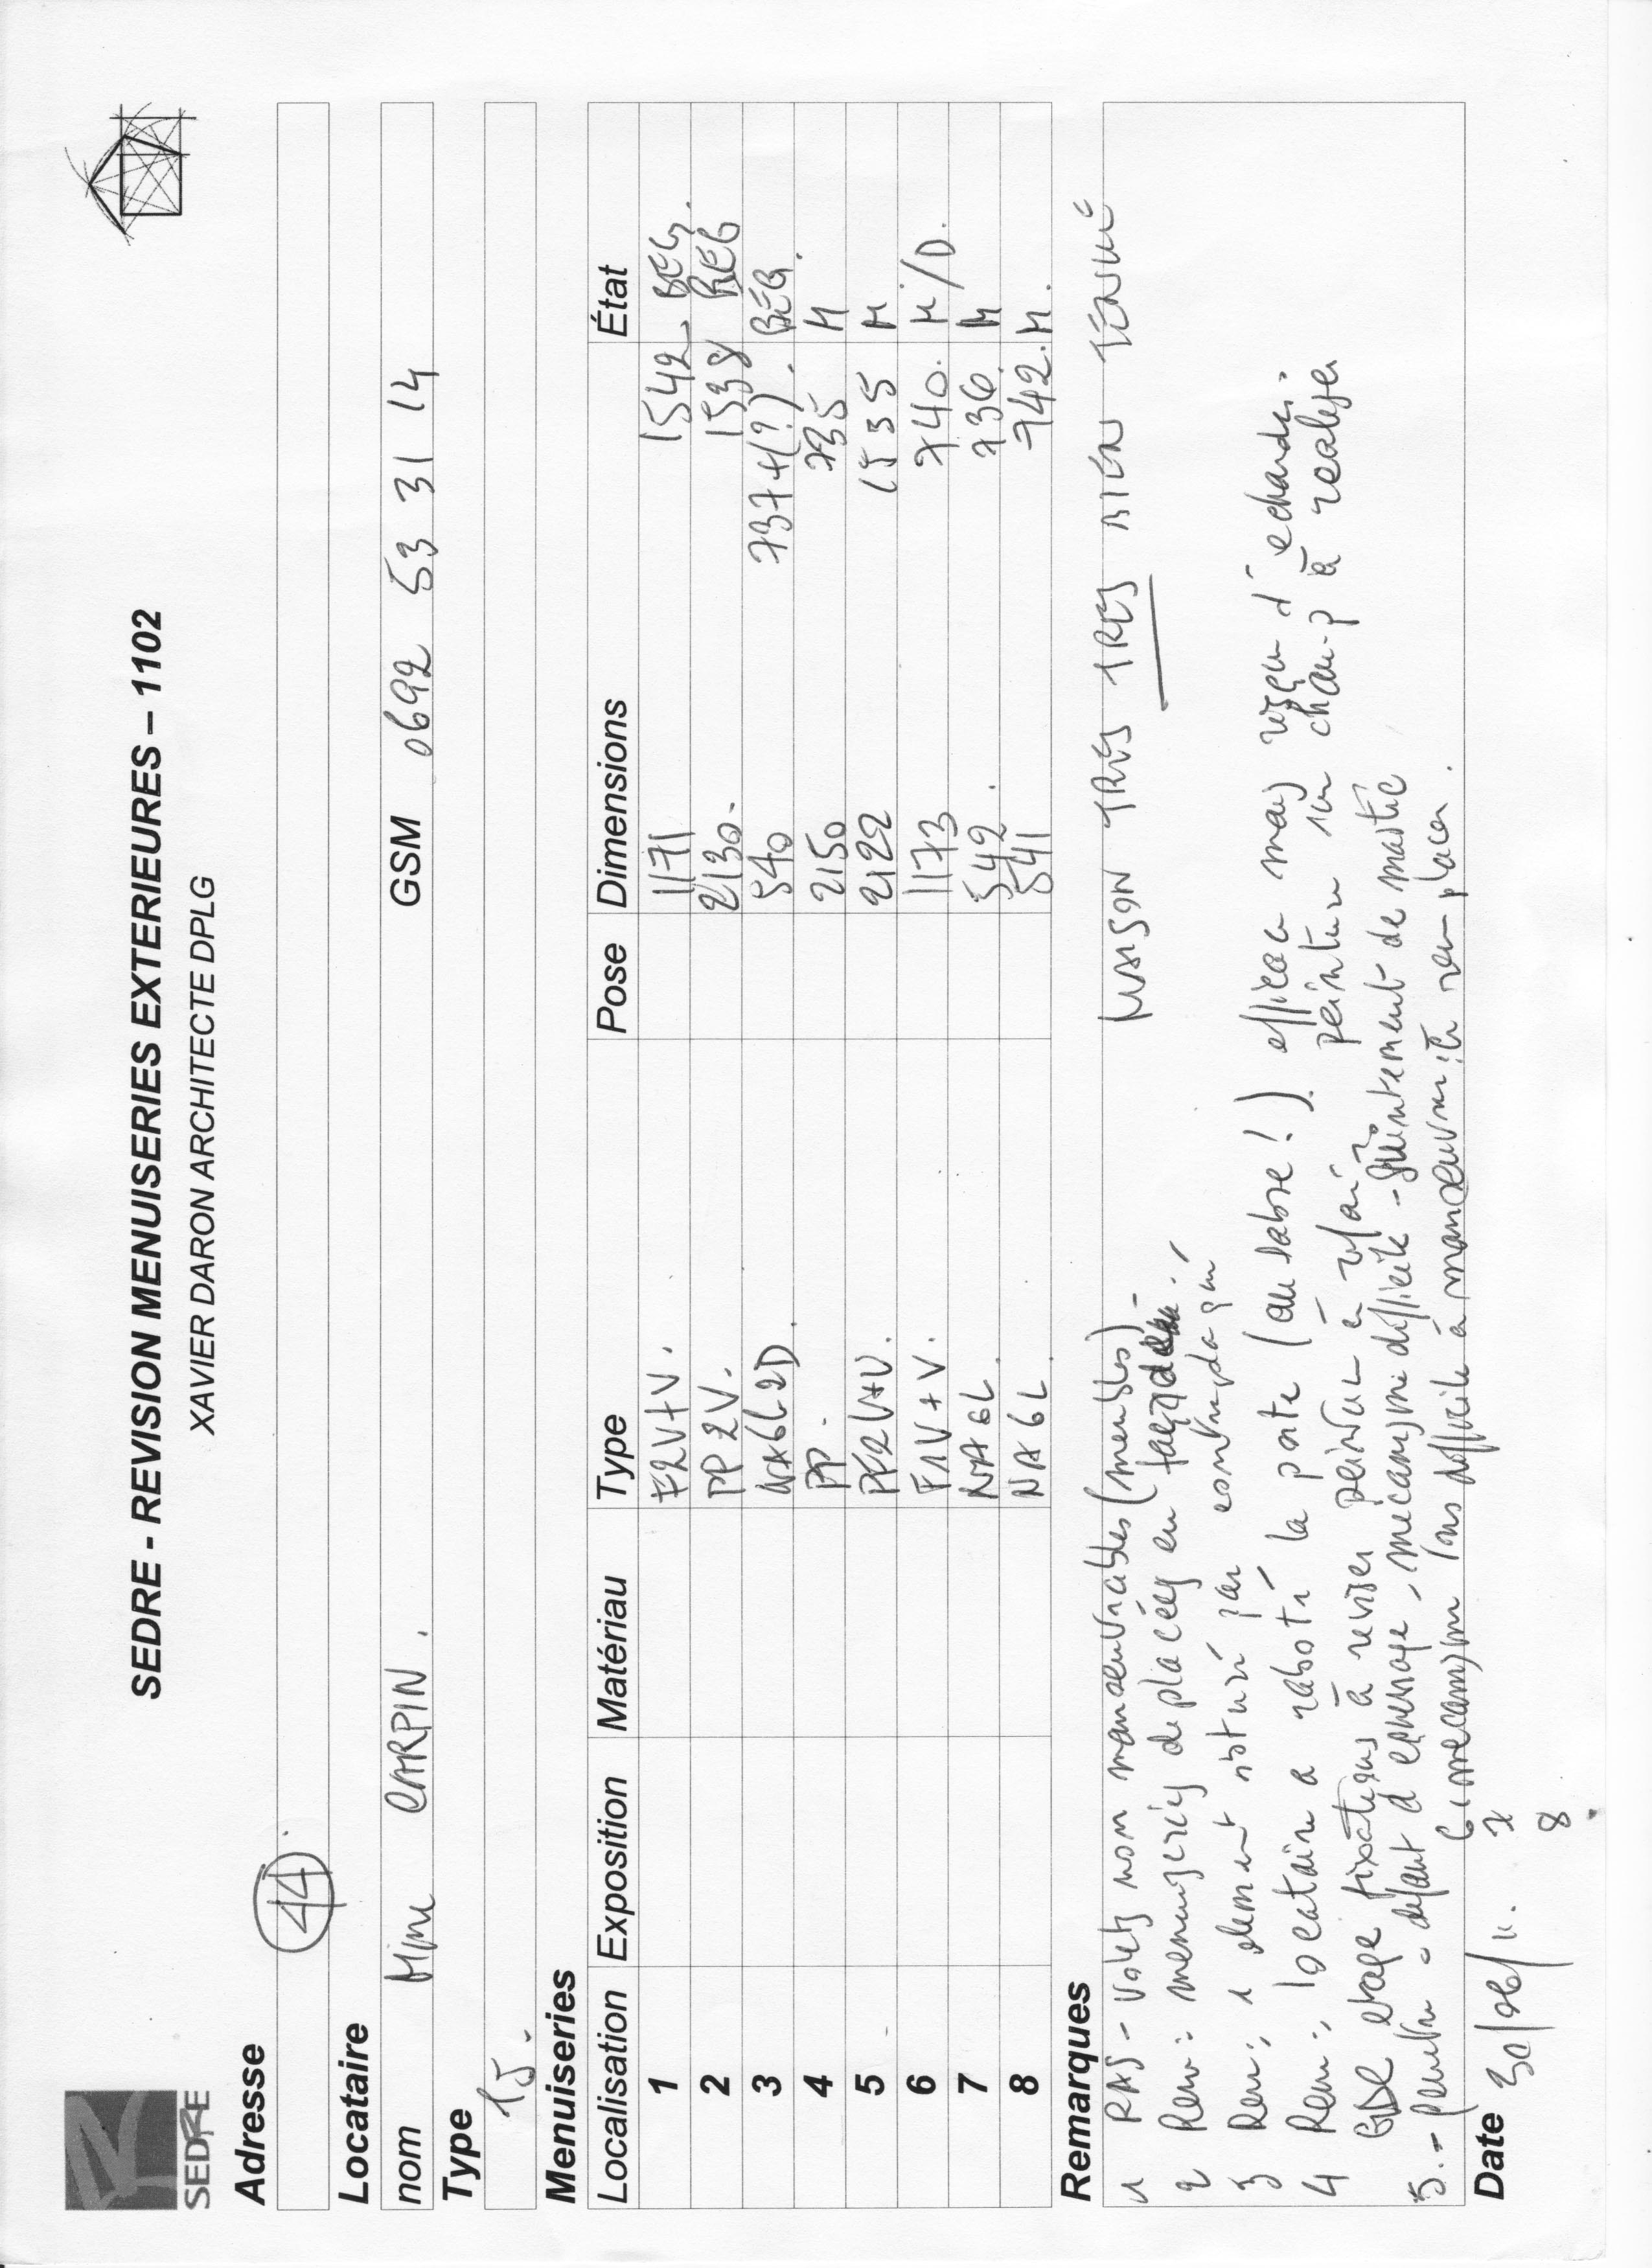 SEDRE
SEDRE - REVISION MENUISERIES EXTERIEURES – 1102
XAVIER DARON ARCHITECTE DPLG
Adresse
44
Locataire
nom Mme CARPIN. GSM 0692 53 31 14
Type
T5.
Menuiseries
Localisation Exposition Matériau Type Pose Dimensions État
1 F2V+V. 1171 1542 BEG.
2 PP2V. 2130. 1538 BEG
3 NA6L2D. 540 737+(?). BEG.
4 PP. 2150 735 M
5 PF2V+V. 2122 1535 M
6 F1V+V. 1173 740. M/D.
7 NA6L. 542. 736. M
8 NA6L. 541 742. M.
Remarques
MAISON TRES TRES BIEN TENUE
1 RAS - Volets non manoeuvrables (meubles) -
2 Rem: menuiseries deplacées en façade
3 Rem: 1 element obturé par contreplaqué
4 Rem: locataire a raboté la porte (au sabre!) efficace mais reçu d'echardes.
etage fixations à reviser peinture à peinture sur champ à realiser
5. - defaut d'equerrage, mecanisme difficile - suintement de mastic
6 mecanisme très difficile à manoeuvrer: à remplacer.
7
8
Date 30/06/11.